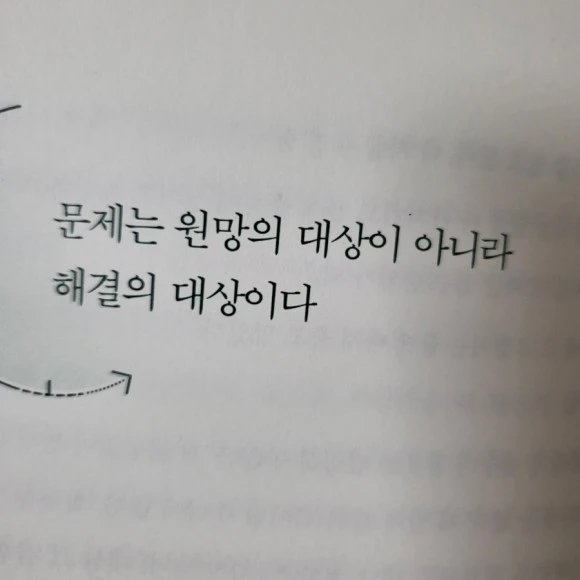 문제는 원망의 대상이 아니라
해결의 대상이다